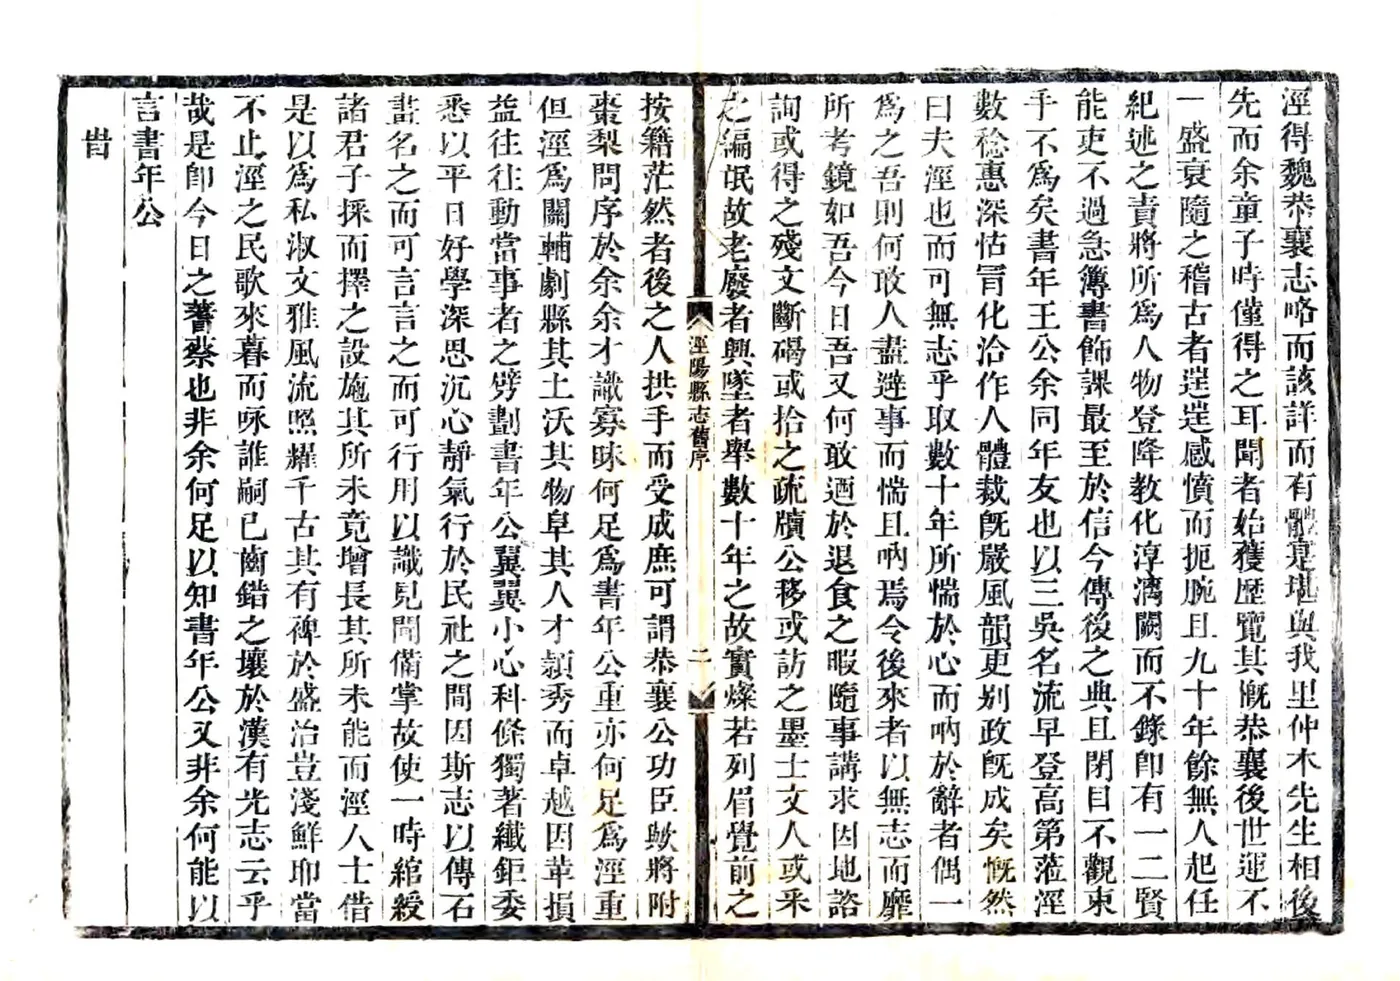 涇得魏恭襄志略而該詳而有體寔堪與我里仲木先生相後
先而余童子時僅得之耳聞者始獲歷覽其慨恭襄後世運不
一盛衰隨之稽古者逞逞感憤而扼腕且九十年餘無人起任
紀述之責將所為人物登降教化淳漓闕而不錄卽有一二賢
能吏不過急簿書飾課最至於信今傳後之典且閉目不觀束
手不為矣書年王公余同年友也以三吳名流早登高第蒞涇
數稔惠深怙冐化洽作人體裁旣嚴風韻更别政旣成矣慨然
曰夫涇也而可無志乎取數十年所惴於心而吶於辭者偶一
為之吾則何敢人盡避事而惴且吶焉令後來者以無志而靡
所考鏡如吾今日吾又何敢迺於退食之暇隨事講求因地諮
詢或得之殘文斷碣或拾之疏牘公移或訪之墨士文人或采
之編氓故老廢者興墜者舉數十年之故實燦若列眉覺前之
涇陽縣志舊序
二
按籍茫然者後之人拱手而受成庶可謂恭襄公功臣歟將附
棗梨問序於余余才識寡昧何足為書年公重亦何足為涇重
但涇為關輔劇縣其土沃其物阜其人才穎秀而卓越因革損
益往往動當事者之劈劃書年公翼翼小心科條獨著纖鉅委
悉以平日好學深思沉心靜氣行於民社之間因斯志以傳石
畫名之而可言言之而可行用以識見聞備掌故使一時綰綬
諸君子採而擇之設施其所未竟增長其所未能而涇人士借
是以為私淑文雅風流照耀千古其有碑於盛治豈淺鮮耶當
不止涇之民歌來暮而咏誰嗣已齒錯之壤於漢有光志云乎
哉是卽今日之蓍蔡也非余何足以知書年公又非余何能以
言書年公
旹